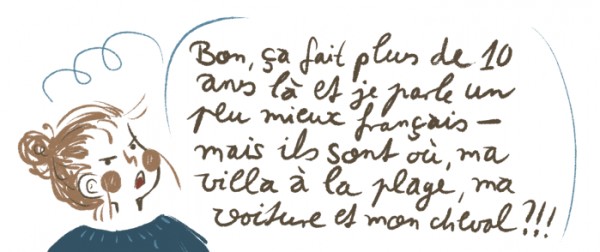 Bon, ça fait plus de 10
ans là et je parle un
peu mieux français —
mais ils sont où, ma
villa à la plage, ma
voiture et mon cheval ?!!